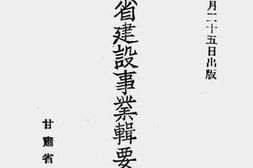 月二十五日出版
省建設事業輯要
甘肅省